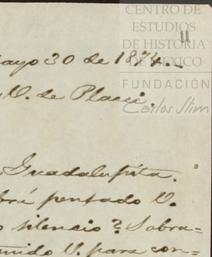 CENTRO DE
ESTUDIOS
DE HISTORIA
DE MÉXICO
FUNDACIÓN
Carlos Slim
11
ayo 30 de 1874.
V. de Place.
Guadalupita.
bré pensado V.
o silencio? Sobra-
nido V. para con-